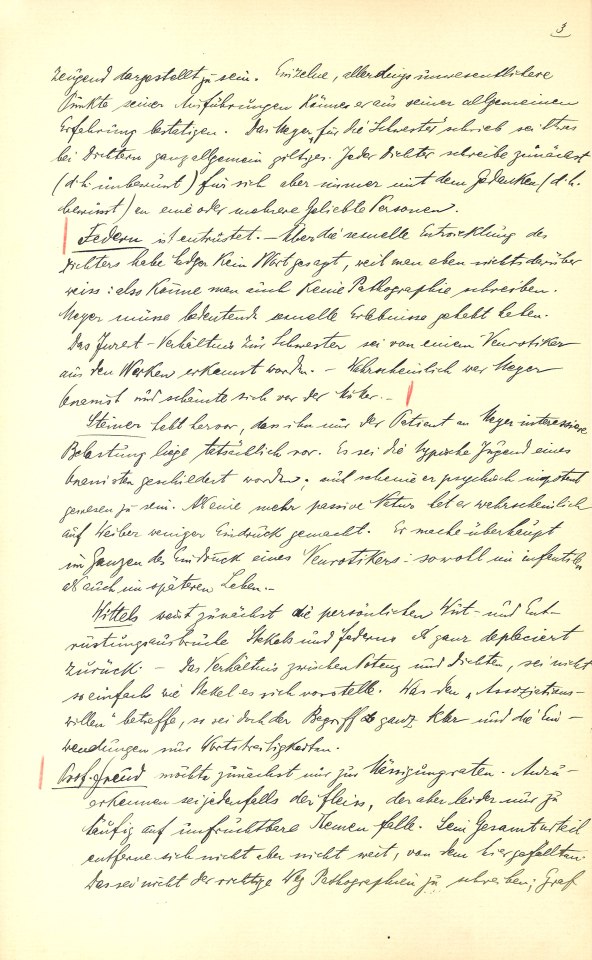 3
zeugend dargestellt zu sein. Einzelne, allerdings unwesentlichere
Punkte seiner Ausführungen könne er aus seiner allgemeinen
Erfahrung bestätigen. Das Meyer „für die Schwester" schrieb sei etwas
bei Dichtern ganz allgemein giltiges. Jeder Dichter schreibe zunächst
(d.h. unbewusst) für sich aber immer mit dem Gedanken (d.h.
bewusst) an eine oder mehrere geliebte Personen.
Federn ist entrüstet. – Über die sexuelle Entwicklung des
Dichters habe Sadger kein Wort gesagt, weil man eben nichts darüber
weiss: also könne man auch keine Pathographie schreiben.
Meyer müsse bedeutende sexuelle Erlebnisse gehabt haben.
Das Verhältnis zur Schwester sei von einem Neurotiker
aus den Werken erkannt worden. – Wahrscheinlich war Meyer
Onanist und schämte sich vor der Mutter. –
Steiner hebt hervor, dass ihn nur der Patient an Meyer interessiere
Belastung liege tatsächlich vor. Es sei die typische Jugend eines
Onanisten geschildert worden; auch scheine er psychisch impotent
gewesen zu sein. Als eine mehr passive Natur hat er wahrscheinlich
auf Weiber weniger Eindruck gemacht. Er mache überhaupt
im Ganzen den Eindruck eines Neurotikers: sowohl im infantilen
als auch im späteren Leben. –
Wittels weist zunächst die persönlichen Wut- und Ent-
rüstungsausbrüche Stekels und Federns als ganz deplaciert
zurück. – Das Verhältnis zwischen Potenz und Dichten, sei nicht
so einfach wie Stekel es sich vorstelle. Was den „Assoziations-
willen" betreffe, so sei doch der Begriff ganz klar und die Ein-
wendungen nur Wortstreitigkeiten.
Prof. Freud möchte zunächst nur zur Mässigung raten. Anzu-
erkennen sei jedenfalls der Fleiss, der aber leider nur zu
häufig auf unfruchtbare Themen falle. Sein Gesamturteil
entferne sich nicht aber nicht weit, von dem hier gefällten.
Das sei nicht der richtige Weg Pathographien zu schreiben; Graf